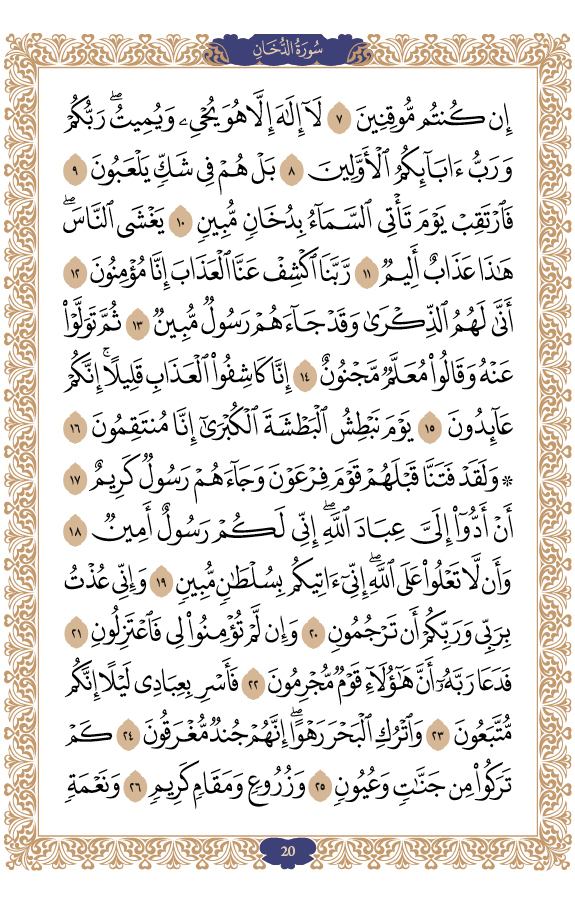 سُورَةُ الدُّخَانِ
إِن كُنتُم مُّوقِنِينَ ٧ لَآ إِلَٰهَ إِلَّا هُوَ يُحْيِۦ وَيُمِيتُۖ رَبُّكُمْ
وَرَبُّ ءَابَآئِكُمُ ٱلْأَوَّلِينَ ٨ بَلْ هُمْ فِى شَكٍّ يَلْعَبُونَ ٩
فَٱرْتَقِبْ يَوْمَ تَأْتِى ٱلسَّمَآءُ بِدُخَانٍ مُّبِينٍ ١٠ يَغْشَى ٱلنَّاسَۖ
هَٰذَا عَذَابٌ أَلِيمٌ ١١ رَّبَّنَا ٱكْشِفْ عَنَّا ٱلْعَذَابَ إِنَّا مُؤْمِنُونَ ١٢
أَنَّىٰ لَهُمُ ٱلذِّكْرَىٰ وَقَدْ جَآءَهُمْ رَسُولٌ مُّبِينٌ ١٣ ثُمَّ تَوَلَّوْا۟
عَنْهُ وَقَالُوا۟ مُعَلَّمٌ مَّجْنُونٌ ١٤ إِنَّا كَاشِفُوا۟ ٱلْعَذَابِ قَلِيلًاۚ إِنَّكُمْ
عَآئِدُونَ ١٥ يَوْمَ نَبْطِشُ ٱلْبَطْشَةَ ٱلْكُبْرَىٰٓ إِنَّا مُنتَقِمُونَ ١٦
۞ وَلَقَدْ فَتَنَّا قَبْلَهُمْ قَوْمَ فِرْعَوْنَ وَجَآءَهُمْ رَسُولٌ كَرِيمٌ ١٧
أَنْ أَدُّوٓا۟ إِلَىَّ عِبَادَ ٱللَّهِۖ إِنِّى لَكُمْ رَسُولٌ أَمِينٌ ١٨
وَأَن لَّا تَعْلُوا۟ عَلَى ٱللَّهِۖ إِنِّىٓ ءَاتِيكُم بِسُلْطَٰنٍ مُّبِينٍ ١٩ وَإِنِّى عُذْتُ
بِرَبِّى وَرَبِّكُمْ أَن تَرْجُمُونِ ٢٠ وَإِن لَّمْ تُؤْمِنُوا۟ لِى فَٱعْتَزِلُونِ ٢١
فَدَعَا رَبَّهُۥٓ أَنَّ هَٰٓؤُلَآءِ قَوْمٌ مُّجْرِمُونَ ٢٢ فَأَسْرِ بِعِبَادِى لَيْلًا إِنَّكُم
مُّتَّبَعُونَ ٢٣ وَٱتْرُكِ ٱلْبَحْرَ رَهْوًاۖ إِنَّهُمْ جُندٌ مُّغْرَقُونَ ٢٤ كَمْ
تَرَكُوا۟ مِن جَنَّٰتٍ وَعُيُونٍ ٢٥ وَزُرُوعٍ وَمَقَامٍ كَرِيمٍ ٢٦ وَنَعْمَةٍ
20